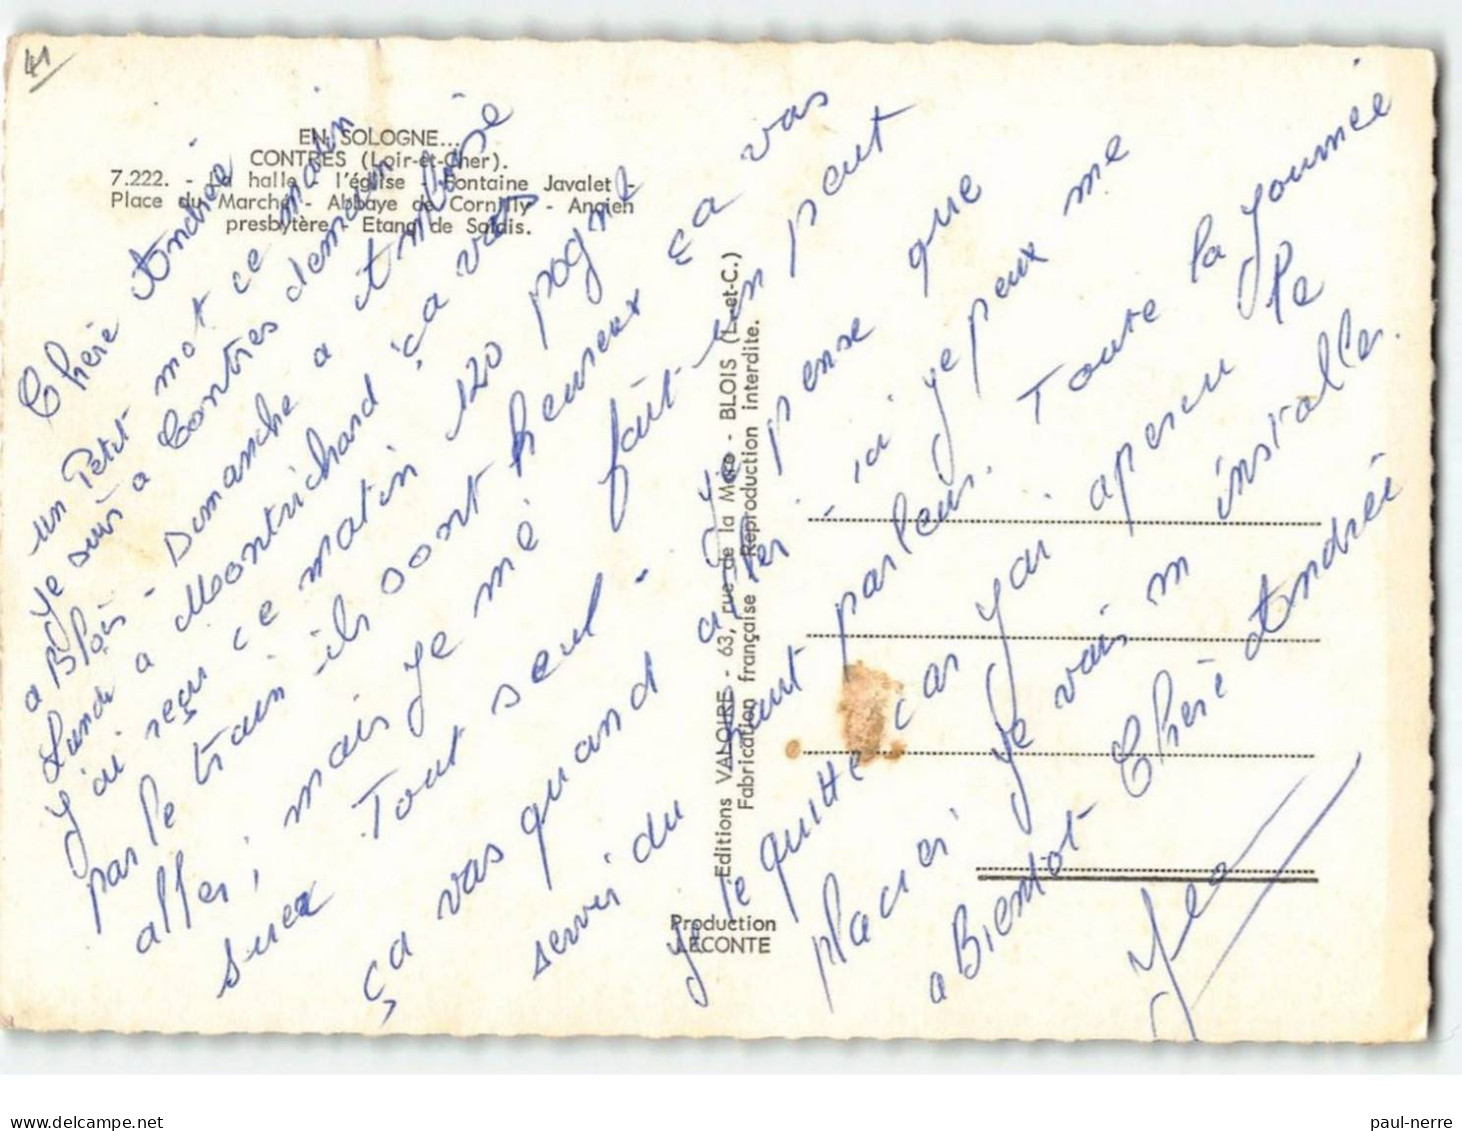 41
EN SOLOGNE...
CONTRES (Loir-et-Cher).
7.222. - La halle - l'église - Fontaine Javalet -
Place du Marché - Abbaye de Cornilly - Ancien
presbytère - Etang de Saldis.
Chère Andrée
un Petit mot ce matin
Je suis a Contres demain
a Blois - Dimanche a Amboise
Lundi a Montrichard ça vas
J'ai reçu ce matin 120 pogne
par le train ils sont heureux ça vas
aller, mais je me fait un peut
suer Tout seul. Je pense que
ça vas quand aller ici je peux me
servir du haut parleur. Toute la Journée
Je te quitte car J'ai apercu le
placier je vais m installer.
a Bientot Chère Andrée
Editions VALOIRE - 63, rue de la Mare - BLOIS (L.-et-C.)
Fabrication française - Reproduction interdite.
Production
LECONTE
paul-nerre